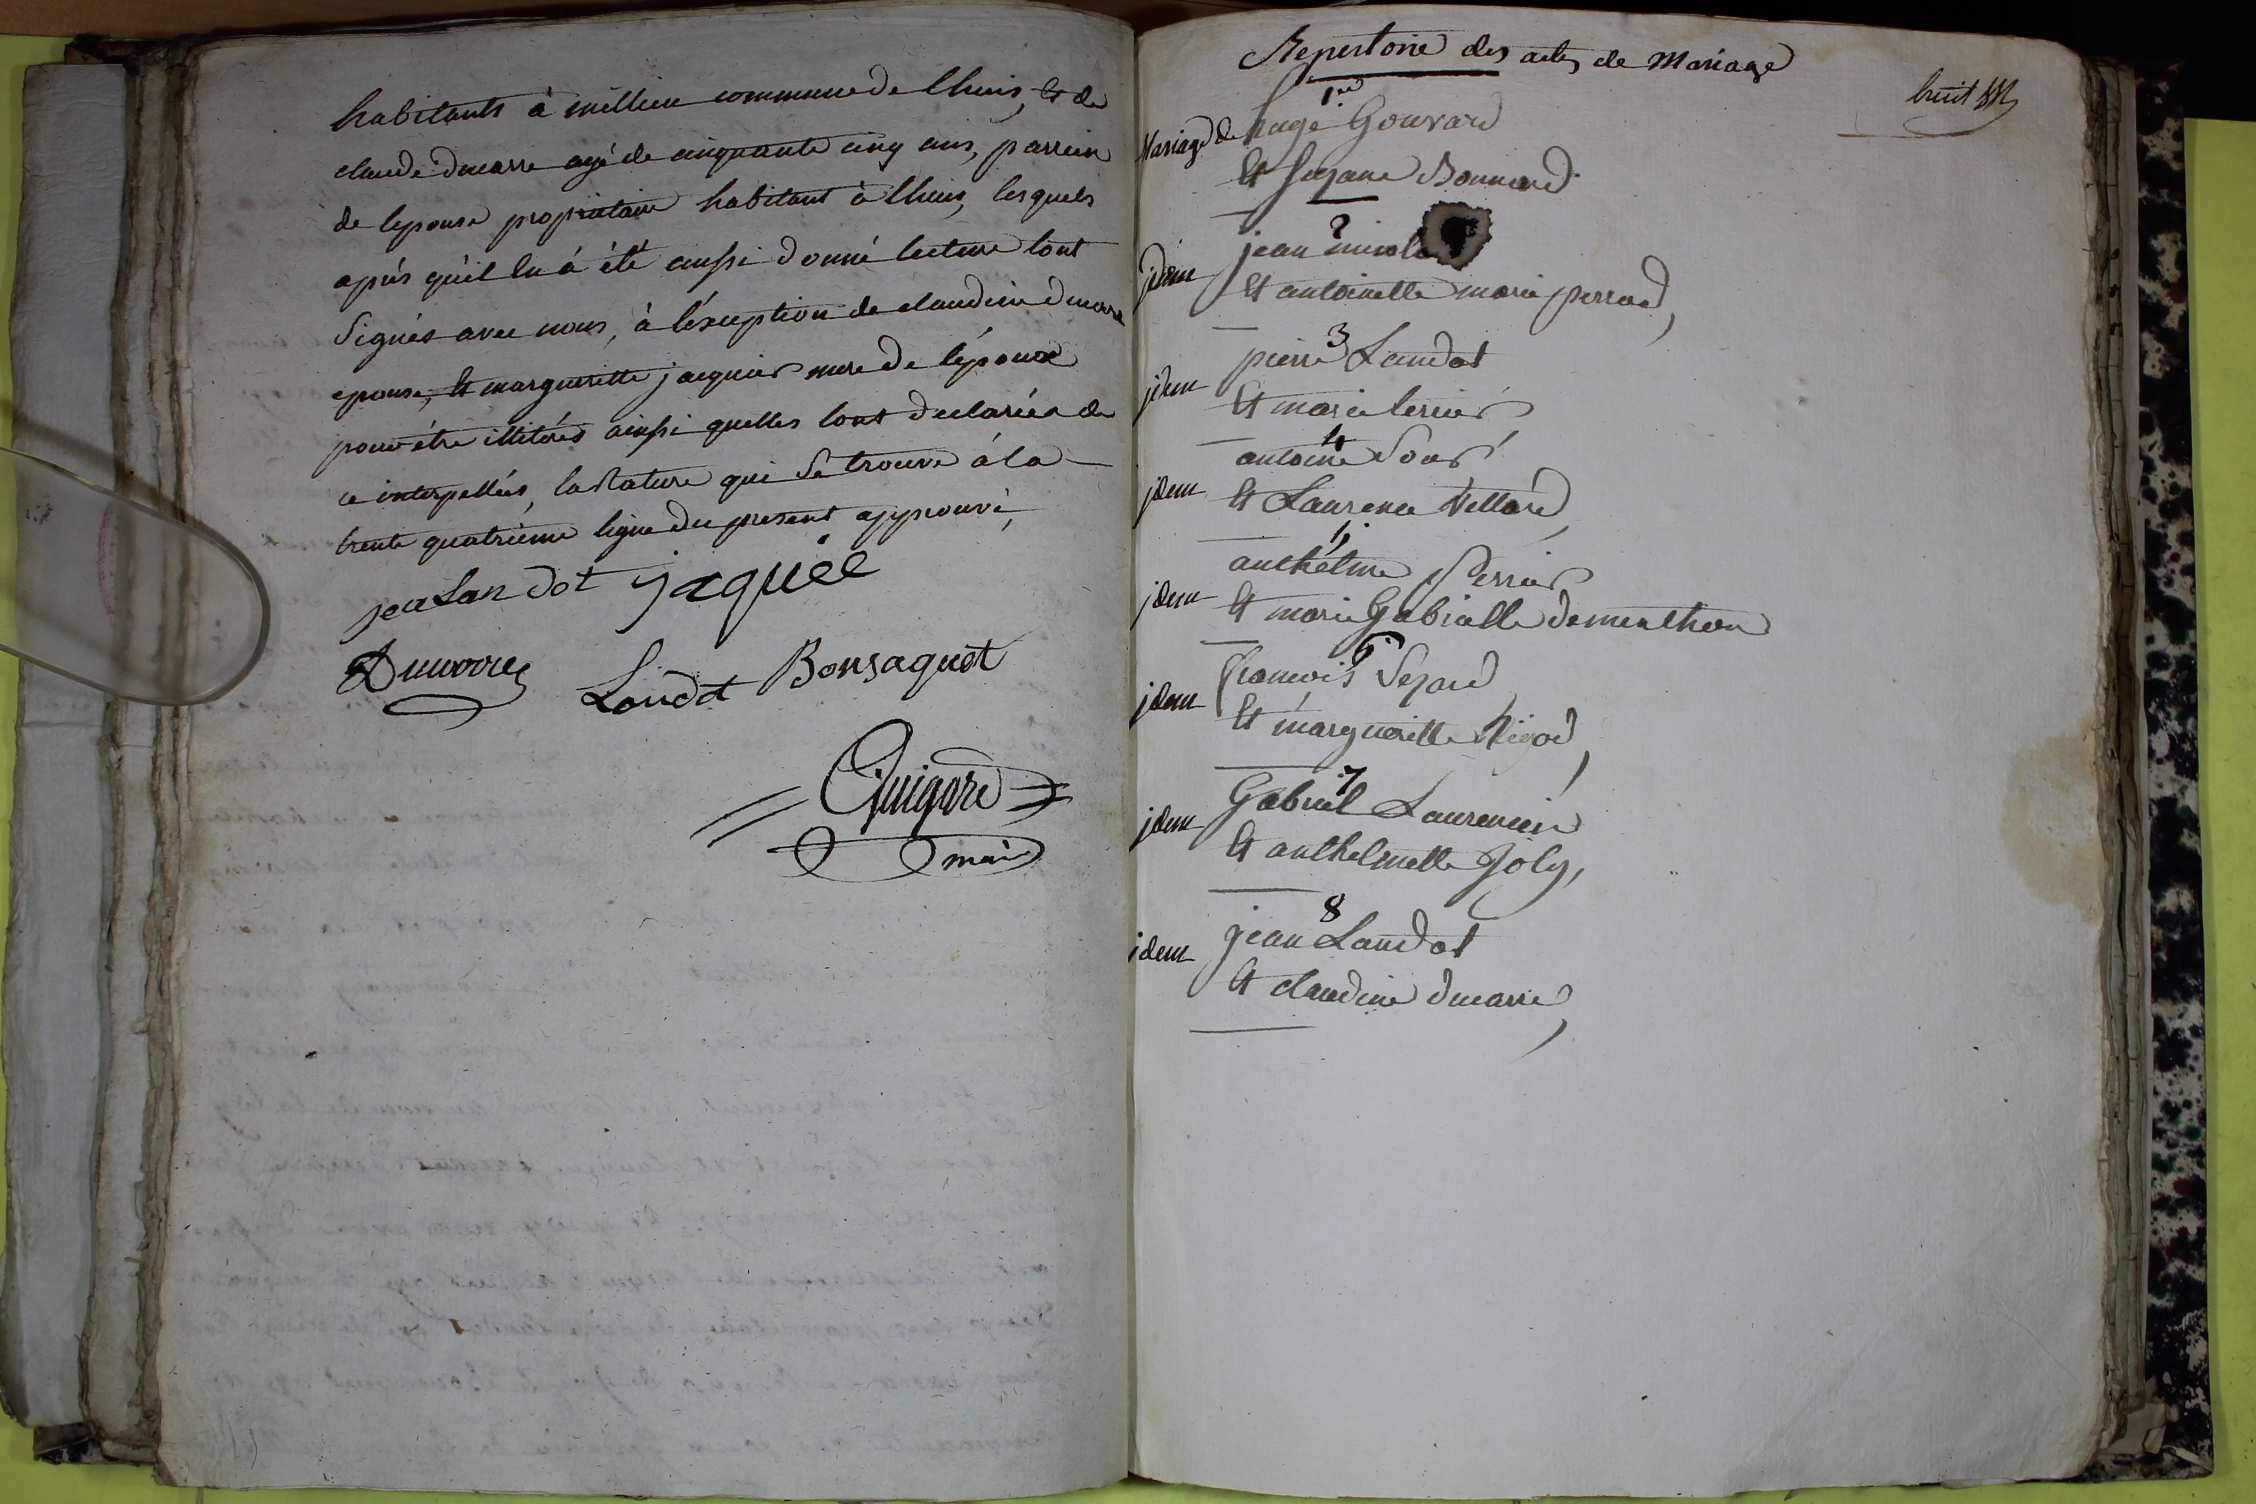 habitants à millieu commune de lhuis, et de
claude ducarre agé de cinquante cinq ans, parrein
de lepouse propriétaire habitant à lhuis, lesquels
après qu'il lu à été aussi donné lecture lont
signés avec nous, à léxception de claudine ducarre
epouse, et margueritte jacquier mere de lépoux
pour être illitérés ainsi quelles lont declarées de
ce interpellées, la rature qui se trouve à la
trente quatrième ligne du present approuvé,
jea Landot jaquié
Ducarre Landot Bonsaquet
Guigard
maire
Repertoire des actes de Mariage
huit
1er
Mariage de hugé Gouvard
et Suzane Bonnard
2
jdem jean nicola
et antoinette marie perraud,
3
jdem pierre Landot
et marie
4
jdem antoine
et Laurence Vellard
5
jdem anthelme Perrier
et marie Gabrielle dementhon
6
jdem francois Sezard
et margueritte Rigod,
7
jdem Gabriel Laurencin
et anthelmette Joly,
8
jdem jean Landot
et claudine ducarre,